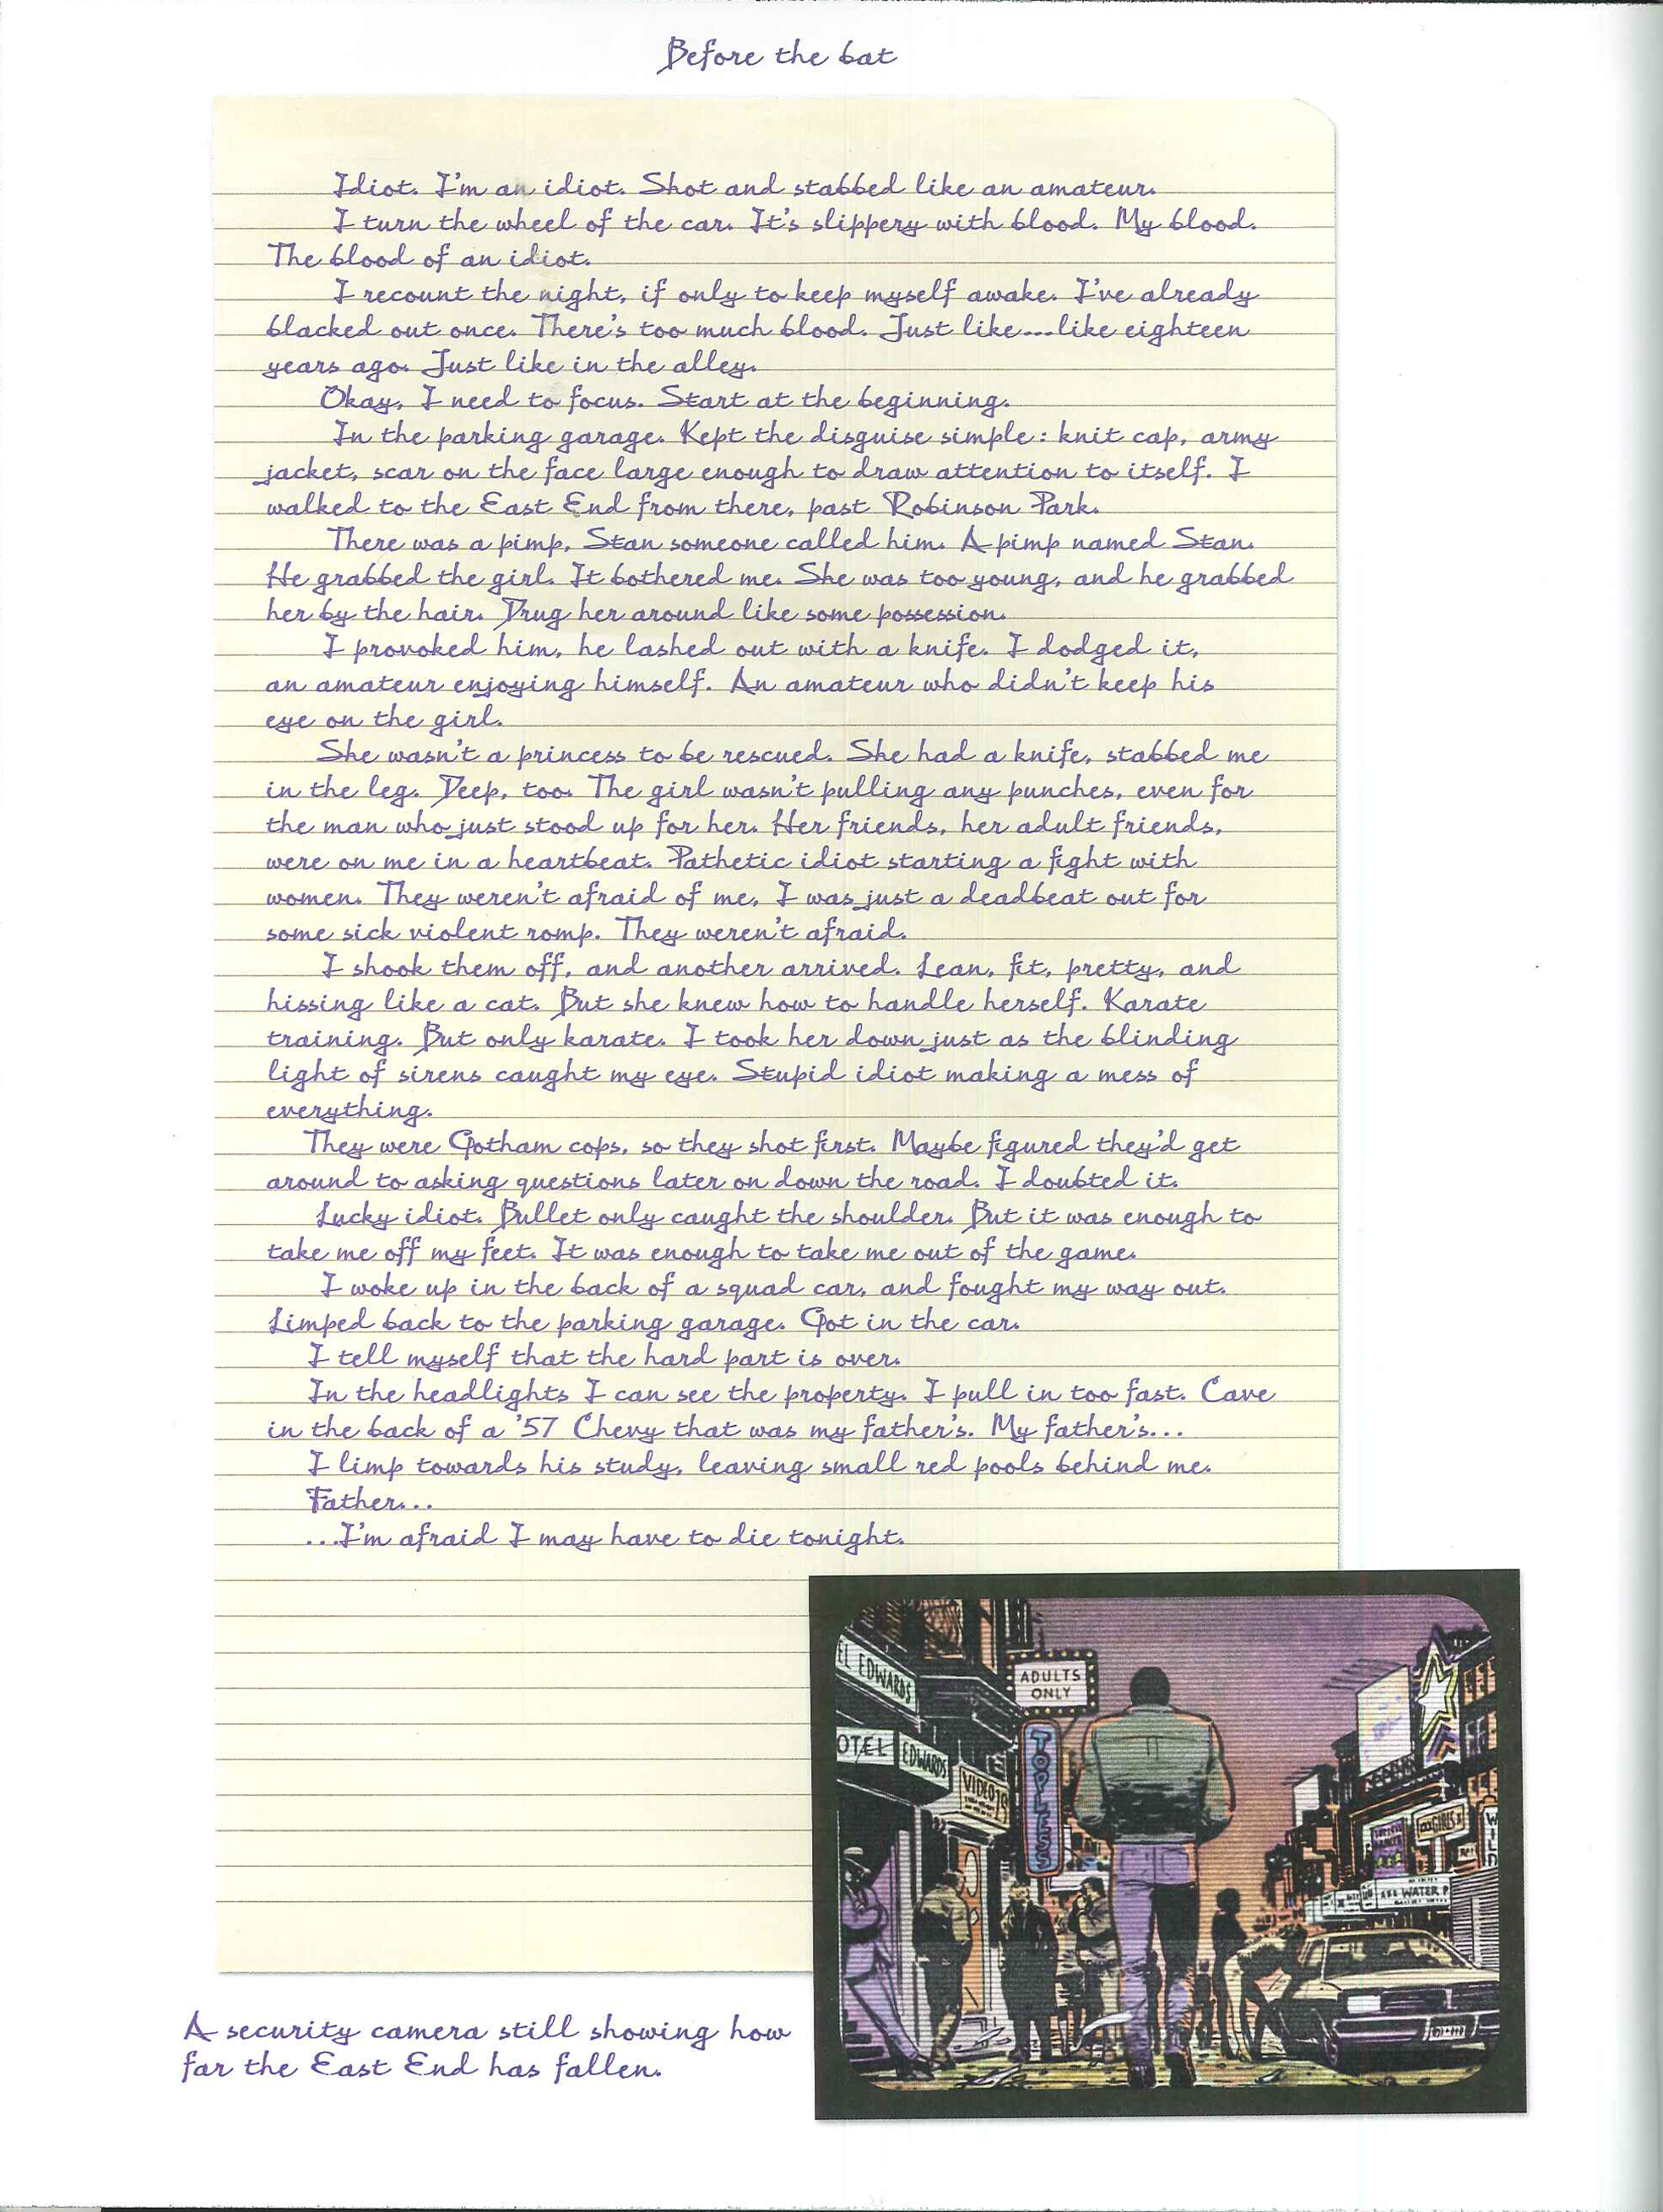 Before the bat
Idiot. I'm an idiot. Shot and stabbed like an amateur.
I turn the wheel of the car. It's slippery with blood. My blood.
The blood of an idiot.
I recount the night, if only to keep myself awake. I've already
blacked out once. There's too much blood. Just like...like eighteen
years ago. Just like in the alley.
Okay, I need to focus. Start at the beginning.
In the parking garage. Kept the disguise simple: knit cap, army
jacket, scar on the face large enough to draw attention to itself. I
walked to the East End from there, past Robinson Park.
There was a pimp, Stan someone called him. A pimp named Stan.
He grabbed the girl. It bothered me. She was too young, and he grabbed
her by the hair. Drug her around like some possession.
I provoked him, he lashed out with a knife. I dodged it,
an amateur enjoying himself. An amateur who didn't keep his
eye on the girl.
She wasn't a princess to be rescued. She had a knife, stabbed me
in the leg. Deep, too. The girl wasn't pulling any punches, even for
the man who just stood up for her. Her friends, her adult friends,
were on me in a heartbeat. Pathetic idiot starting a fight with
women. They weren't afraid of me, I was just a deadbeat out for
some sick violent romp. They weren't afraid.
I shook them off, and another arrived. Lean, fit, pretty, and
hissing like a cat. But she knew how to handle herself. Karate
training. But only karate. I took her down just as the blinding
light of sirens caught my eye. Stupid idiot making a mess of
everything.
They were Gotham cops, so they shot first. Maybe figured they'd get
around to asking questions later on down the road. I doubted it.
Lucky idiot. Bullet only caught the shoulder. But it was enough to
take me off my feet. It was enough to take me out of the game.
I woke up in the back of a squad car, and fought my way out.
Limped back to the parking garage. Got in the car.
I tell myself that the hard part is over.
In the headlights I can see the property. I pull in too fast. Cave
in the back of a '57 Chevy that was my father's. My father's...
I limp towards his study, leaving small red pools behind me.
Father...
...I'm afraid I may have to die tonight.
EL EDWARDS
ADULTS
ONLY
OTEL EDWARDS
VIDEO
TOPLESS
GIRLS
WILD
WATER P
A security camera still showing how
far the East End has fallen.